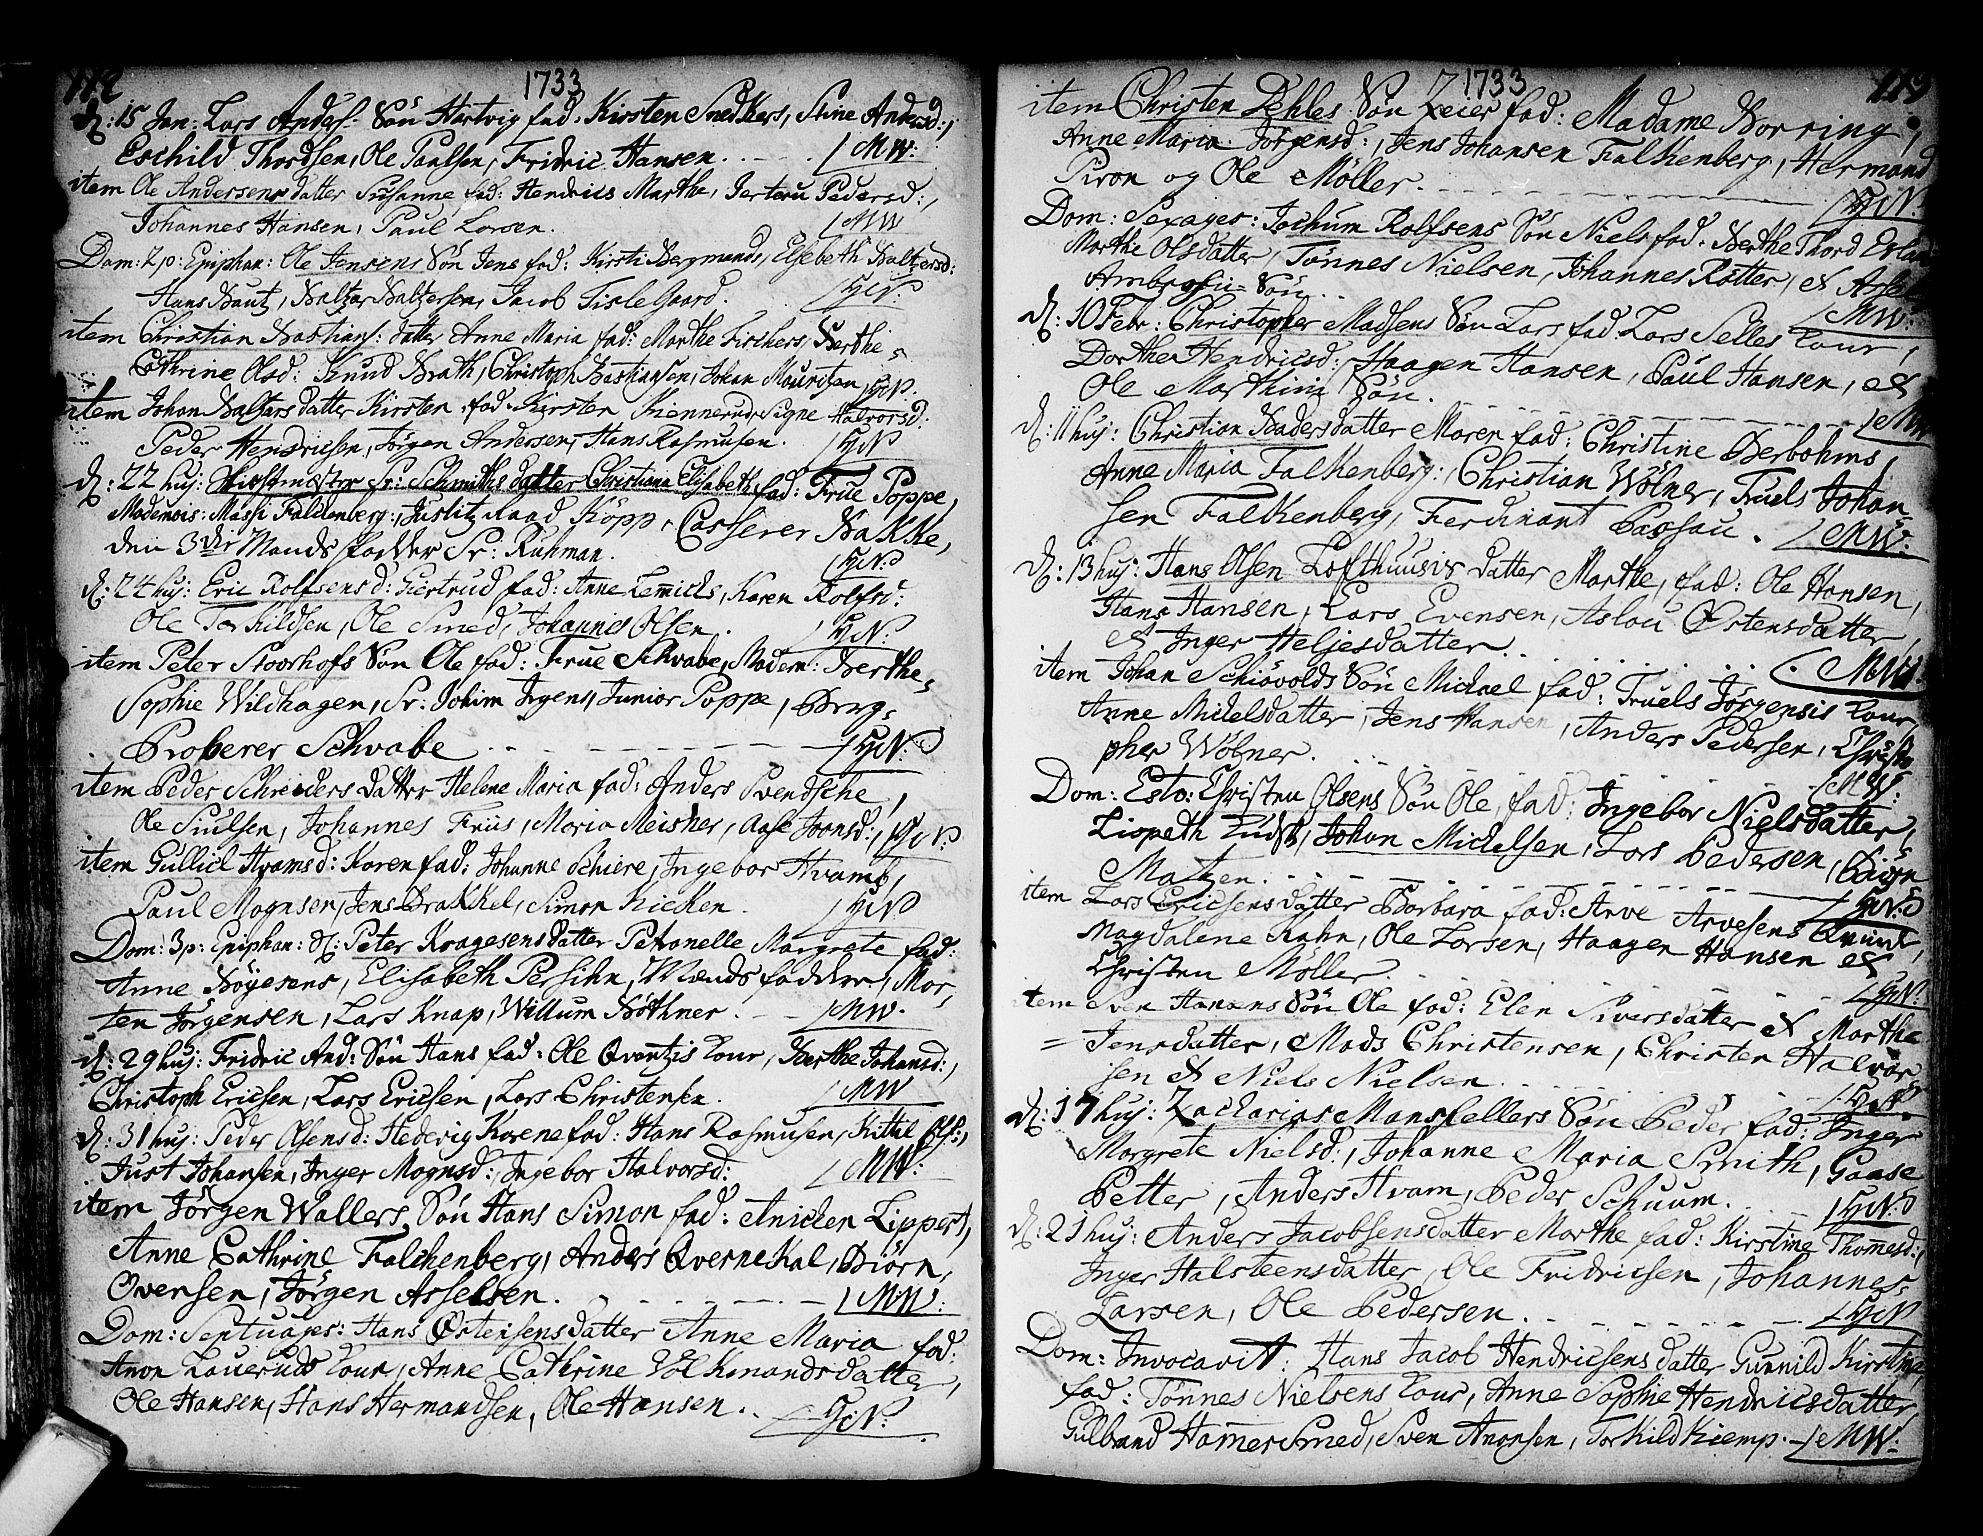 112
1733
d: 15 Jan: Lars Anders: Søn Hartvig fad. Kirsten Snedkers, Stine Andersd:,
Eschild Thordsen, Ole Paulsen, Fridric Hansen. MW:
item Ole Andersens datter Susanne, fad: Hendrics Marthe, Jerteru Pedersd:,
Johannes Hansen, Paul Larsen. MW
Dom: 2 p: Epiphan: Ole Jensens Søn Jens fad: Kirsti Bergmands, Elsebeth Baltzersd:
Hans Baut, Baltzar Baltzersen, Jacob Tislegaard.
item Christian Bastians: datter Anne Maria fad: Marthe Fischers, Berthe
Cathrine Olsd: Knud Brath, Christoph Bastiansen, Johan Mouritzen
item Johan Baltzars datter Kirsten, fad. Kirsten Kiennerud, Signe Halvorsd:
Peder Hendricsen, Jørgen Andersen, Hans Rasmusen.
d: 22 huj: Sr: Schmiths datter Christiana Elisabeth, fad: Frue Poppe,
Mademois: Massi Faldenberg:, Justitz Raad Köpp, Casserer Bakke,
den 3die Mands fadder Sr: Ruhman.
d: 24 huj: Eric Rolfsens d: Giertrud fad: Anne Lemichs, Karen Rolfsd:
Ole Torkildsen, Ole Smed, Johannes Olsen.
item Peter Stoorhofs Søn Ole fad: Frue Schwabe, Madem: Berthe
Sophie Wildhagen, Sr: Jochim Irgens, Junior Poppe, Berg
Proberer Schwabe
item Peder Schreiders datter Helene Maria fad: Anders Svendsche,
Ole Siulsen, Johannes Friis, Maria Meisner, Aase Joensd:,
item Gullich Hvams d: Karen fad: Johanne Schiere, Ingebor Hvams,
Paul Mognsen, Jens Brakkel, Simon Kicken.
Dom: 3 p: Epiphan: d: Peter Kragesens datter Petronelle Margrete fad:
Anne Böyesens, Elisabeth Persihn, Mands faddere, Mor
ten Jørgensen, Lars Knap, Willum Böthner. MW.
d: 29 huj: Fridric And: Søn Hans fad: Ole Qventzis Kour, Berthe Johansd:,
Christoph Ericsen, Lars Ericsen, Lars Christensen. MW
d: 31 huj: Peder Olsens d: Hedevig Karene fad: Hans Rasmusen, Kittil Ols:,
Just Johansen, Inger Mognsd:, Ingebor Halvorsd: MW:
item Jørgen Wallers Søn Hans Simon fad: Anichen Lippert,
Anne Cathrine Falchenberg, Anders Qvernekal, Biörn
Ovensen, Jørgen Asselsen. MW:
Dom: Septuages: Hans Østensens datter Anne Maria fad:
Aron Laueruds Kour, Anne Cathrine Volkmands datter,
Ole Hansen, Hans Hermandsen, Ole Hansen.
1733
113
item Christen Dehles Søn Zeier fad: Madame Borring,
Anne Maria Jörgensd:, Jens Johansen Falkenberg, Hermand
Piron og Ole Möller.
Dom: Sexages: Jochum Rolfsens Søn Niels fad. Berthe Thord
Marthe Olsdatter, Tönnes Nielsen, Johannes Rötter, et
Søn
d: 10 Febr: Christopher Madsens Søn Lars fad Lars Selles Kour,
Dorthe Hendricsd:, Haagen Hansen, Paul Hansen, et
Ole Marthini Søn. MW
d: 11 huj: Christian Baders datter Maren fad: Christine Berbohms,
Anne Maria Falkenberg:, Christian Wölner, Truels Johan
sen Falkenberg, Ferdinant Passau. MW:
d: 13 huj: Hans Olsen Lofthuusis datter Marthe, fad: Ole Hansen,
Hans Hansen, Lars Evensen, Aslou Østensdatter,
et Inger Heljesdatter. MW:
item Johan Schiövolds Søn Michael fad: Truels Jörgensis Kour,
Anne Michelsdatter, Jens Hansen, Anders Pedersen, Christo
pher Wölner. MW:
Dom: Esto: Christen Olsens Søn Ole, fad: Ingebor Nielsdatter,
Lispeth Lunds, Johan Michelsen, Lars Pedersen, Biörn
Matzen.
item Lars Ericsens datter Barbara fad: Arve Arvesens Qvinde,
Magdalene Kahn, Ole Larsen, Haagen Hansen et
Christen Möller.
item Sven Hansens Søn Ole fad: Elen Siversdatter et Marthe
Jensdatter, Mads Christensen, Christen Halvor
sen et Niels Nielsen.
d: 17 huj: Zacharias Mansfellers Søn Peder fad: Inger
Margrete Nielsd:, Johanne Maria Smith, Gaase
Petter, Anders Hvam, Peder Schuum.
d: 21 huj: Anders Jacobsens datter Marthe fad: Kirstine Thomesd:,
Inger Halsteensdatter, Ole Fridricsen, Johannes
Larsen, Ole Pedersen.
Dom: Invocavit: Hans Jacob Hendricsens datter Gunnild Kirstina,
fad: Tönnes Nielsens Kour, Anne Sophie Hendricsdatter,
Gulbrand Hammersmed, Sven Aronsen, Torkild Kiemp. MW: